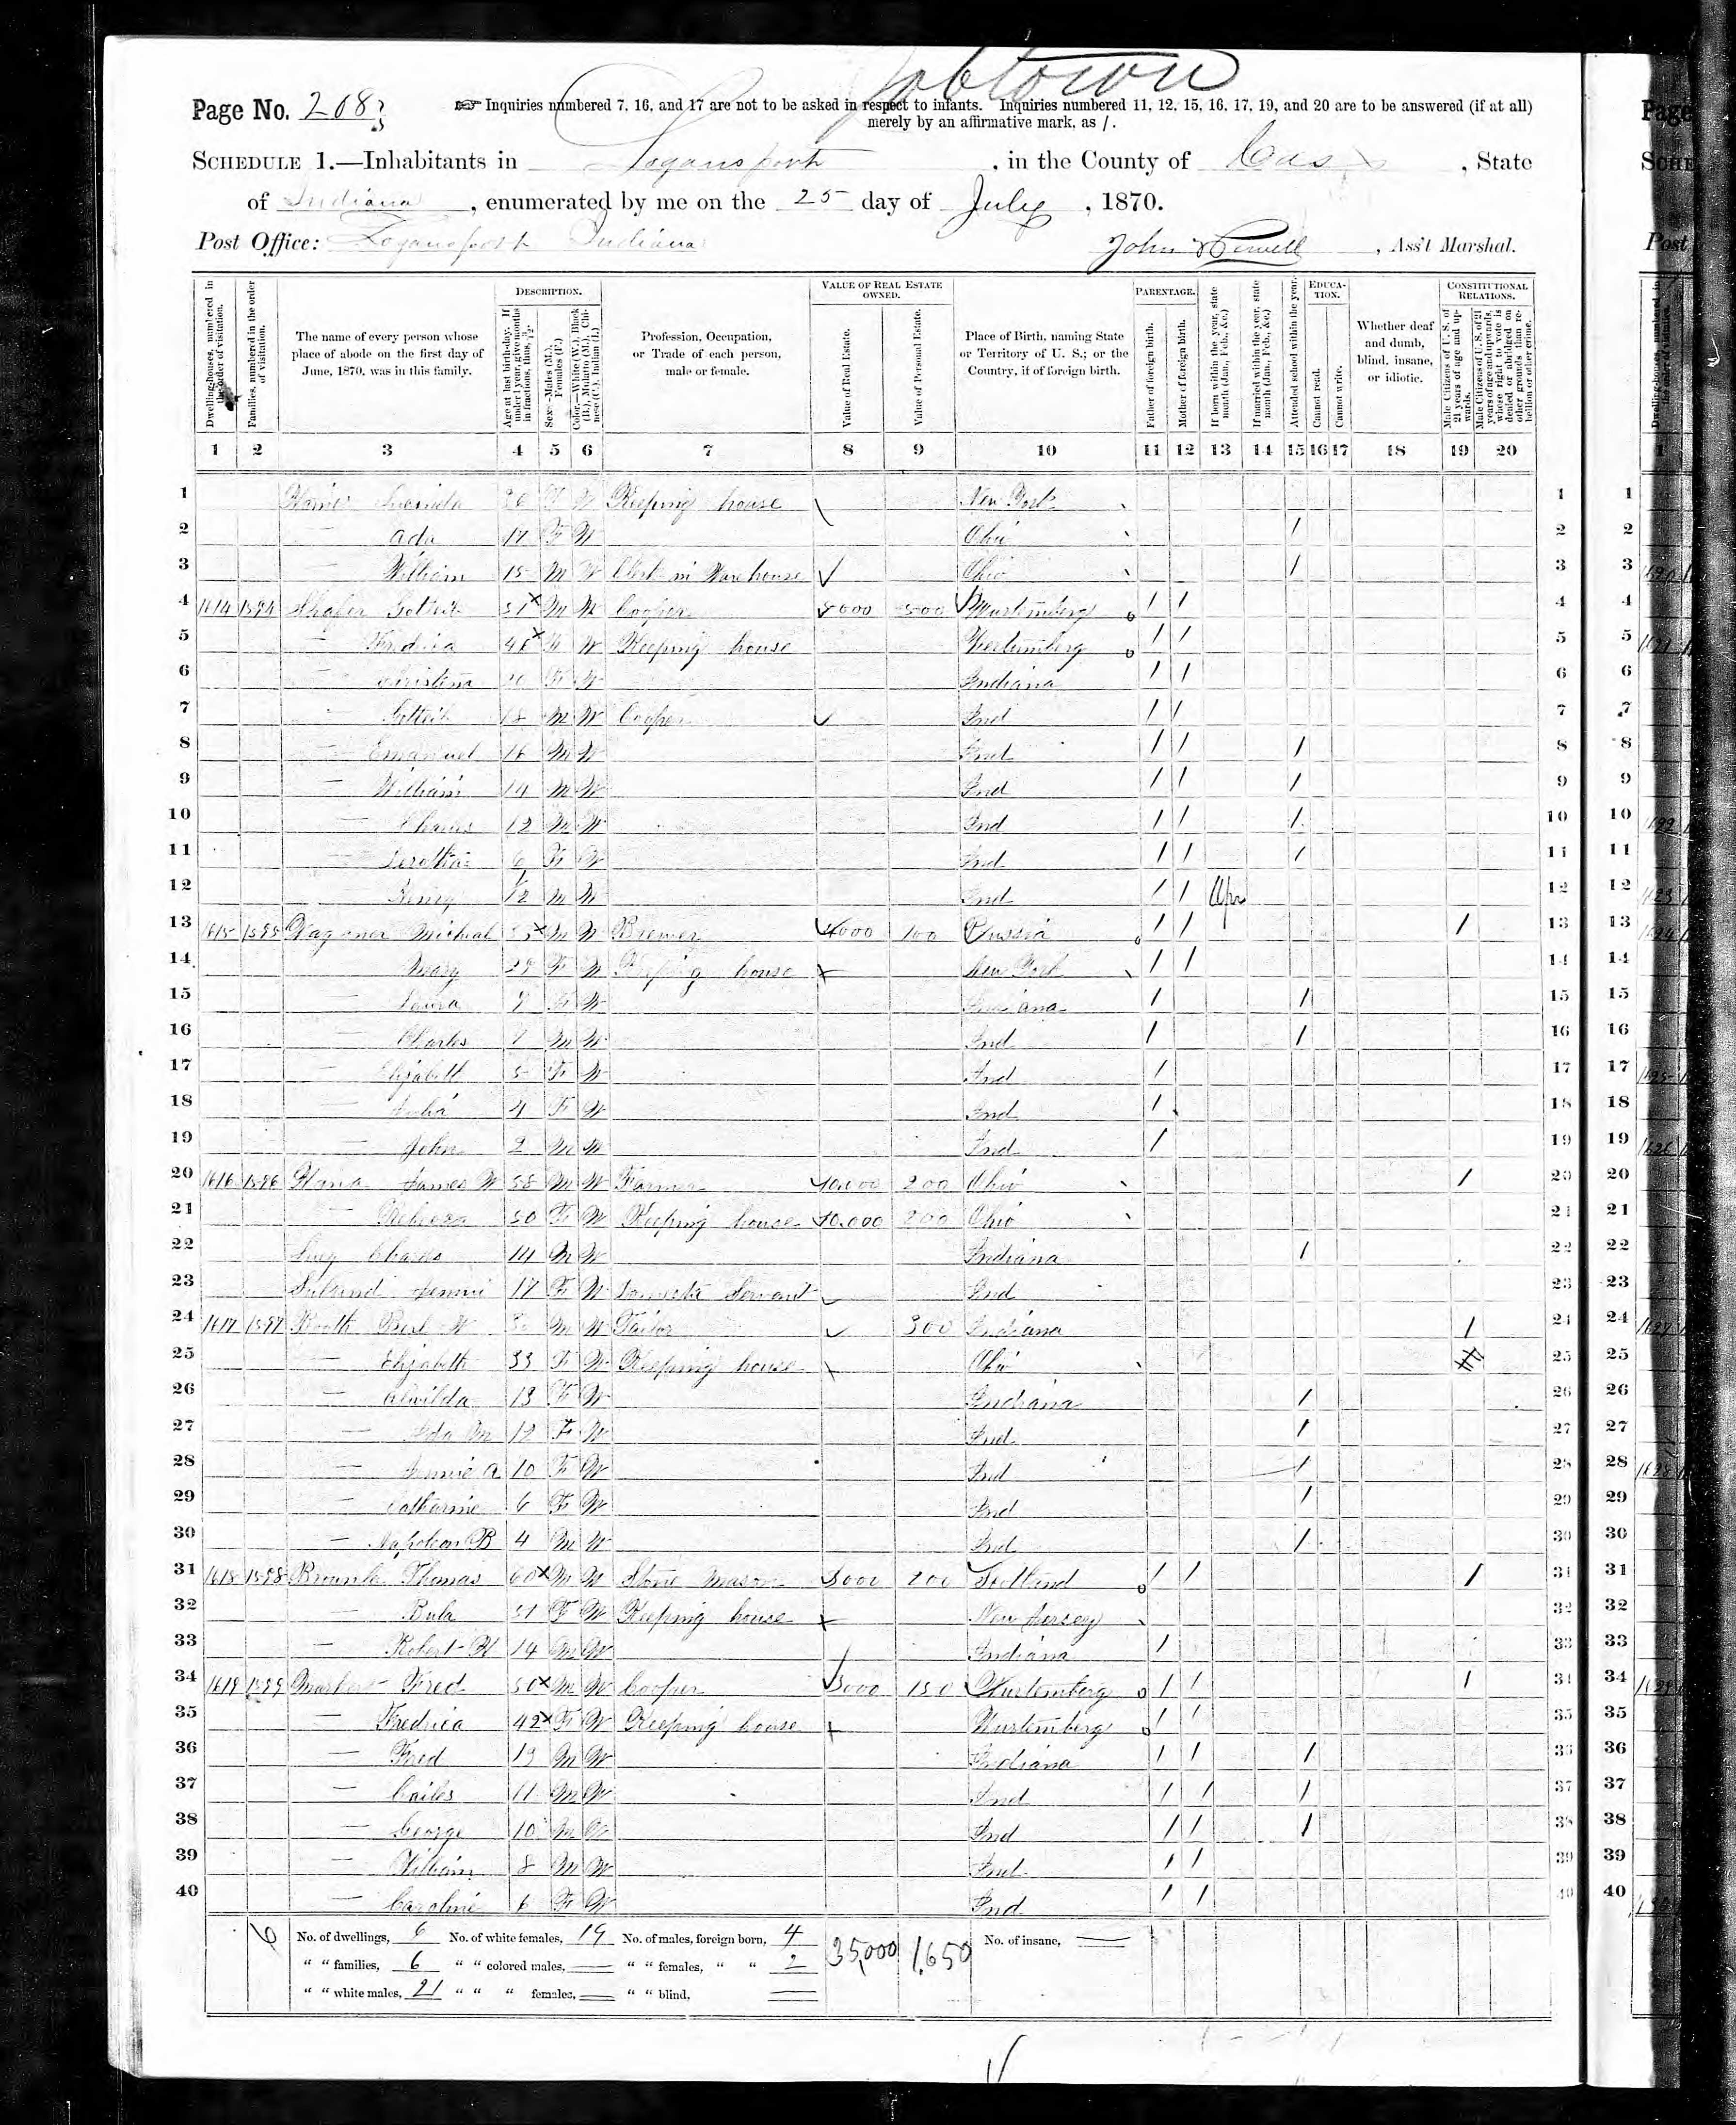 Jobtown
Page No. 208 ☞ Inquiries numbered 7, 16, and 17 are not to be asked in respect to infants. Inquiries numbered 11, 12, 15, 16, 17, 19, and 20 are to be answered (if at all)
merely by an affirmative mark, as /.
SCHEDULE 1.—Inhabitants in Logansport, in the County of Cass, State
of Indiana, enumerated by me on the 25 day of July, 1870.
Post Office: Logansport Indiana John, Ass't Marshal.
DESCRIPTION. VALUE OF REAL ESTATE OWNED. PARENTAGE. EDUCATION. CONSTITUTIONAL RELATIONS.
Dwelling-houses, numbered in the order of visitation.
Families, numbered in the order of visitation.
The name of every person whose place of abode on the first day of June, 1870, was in this family.
Age at last birth-day. If under 1 year, give months in fractions, thus, 3/12.
Sex.—Males (M.), Females (F.)
Color.—White (W.), Black (B.), Mulatto (M.), Chinese (C.), Indian (I.)
Profession, Occupation, or Trade of each person, male or female.
Value of Real Estate.
Value of Personal Estate.
Place of Birth, naming State or Territory of U. S.; or the Country, if of foreign birth.
Father of foreign birth.
Mother of foreign birth.
If born within the year, state month (Jan., Feb., &c.)
If married within the year, state month (Jan., Feb., &c.)
Attended school within the year.
Cannot read.
Cannot write.
Whether deaf and dumb, blind, insane, or idiotic.
Male Citizens of U. S. of 21 years of age and upwards.
Male Citizens of U. S. of 21 years of age and upwards, where right to vote is denied or abridged on other grounds than rebellion or other crime.
1 2 3 4 5 6 7 8 9 10 11 12 13 14 15 16 17 18 19 20
1 Lucinda 36 F W Keeping house New York 1
2 — Ada 17 F W Ohio / 2
3 — William 15 M W Clerk in Warehouse Ohio / 3
4 1614 1594 Shafer Gotleib 51 M W Cooper 5000 500 Wurtemberg / / 4
5 — Fredrica F W Keeping house Wurtemberg / / 5
6 — Christina 20 F W Indiana / / 6
7 — Gotleib 18 M W Cooper Ind / / 7
8 — Emanuel 16 M W Ind / / / 8
9 — William 14 M W Ind / / / 9
10 — Charles 12 M W Ind / / / 10
11 — 6 F W Ind / / / 11
12 — Henry M W Ind / / Apr 12
13 1615 1595 Wagoner Michial M W Brewer 4000 100 Prussia / / / 13
14 — Mary 29 F W Keeping house New York / / 14
15 — Laura 9 F W Indiana / / 15
16 — Charles 7 M W Ind / / 16
17 — Elizabeth 5 F W Ind / 17
18 — Julia 4 F W Ind / 18
19 — John 2 M W Ind / 19
20 1616 1596 James W 58 M W Farmer 10,000 200 Ohio / 20
21 — 50 F W Keeping house 10,000 200 Ohio 21
22 Charles 14 M W Indiana / 22
23 Jennie 17 F W Domestic Servant Ind 23
24 1617 1597 Booth M W Tailor 300 Indiana / 24
25 — Elizabeth 33 F W Keeping house Ohio 25
26 — Alwilda 13 F W Indiana / 26
27 — Ida M 12 F W Ind / 27
28 — Jennie A 10 F W Ind / 28
29 — Catharine 6 F W Ind / 29
30 — Napoleon B 4 M W Ind / 30
31 1618 1598 Thomas 60 M W Stone Mason 3000 200 Scotland / / / 31
32 — Bula 51 F W Keeping house New Jersey 32
33 — Robert 14 M W Indiana / 33
34 1619 1599 Markert Fred 50 M W Cooper 3000 150 Wurtemberg / / / 34
35 — Fredrica 42 F W Keeping house Wurtemberg / / 35
36 — Fred 13 M W Indiana / / / 36
37 — 11 M W Ind / / / 37
38 — George 10 M W Ind / / / 38
39 — William 8 M W Ind / / 39
40 — Caroline 6 F W Ind / / 40
6 No. of dwellings, 6 No. of white females, 19 No. of males, foreign born, 4 35,000 1,650 No. of insane,
" " families, 6 " " colored males, " " females, " " 2
" " white males, 21 " " " females, " " blind,